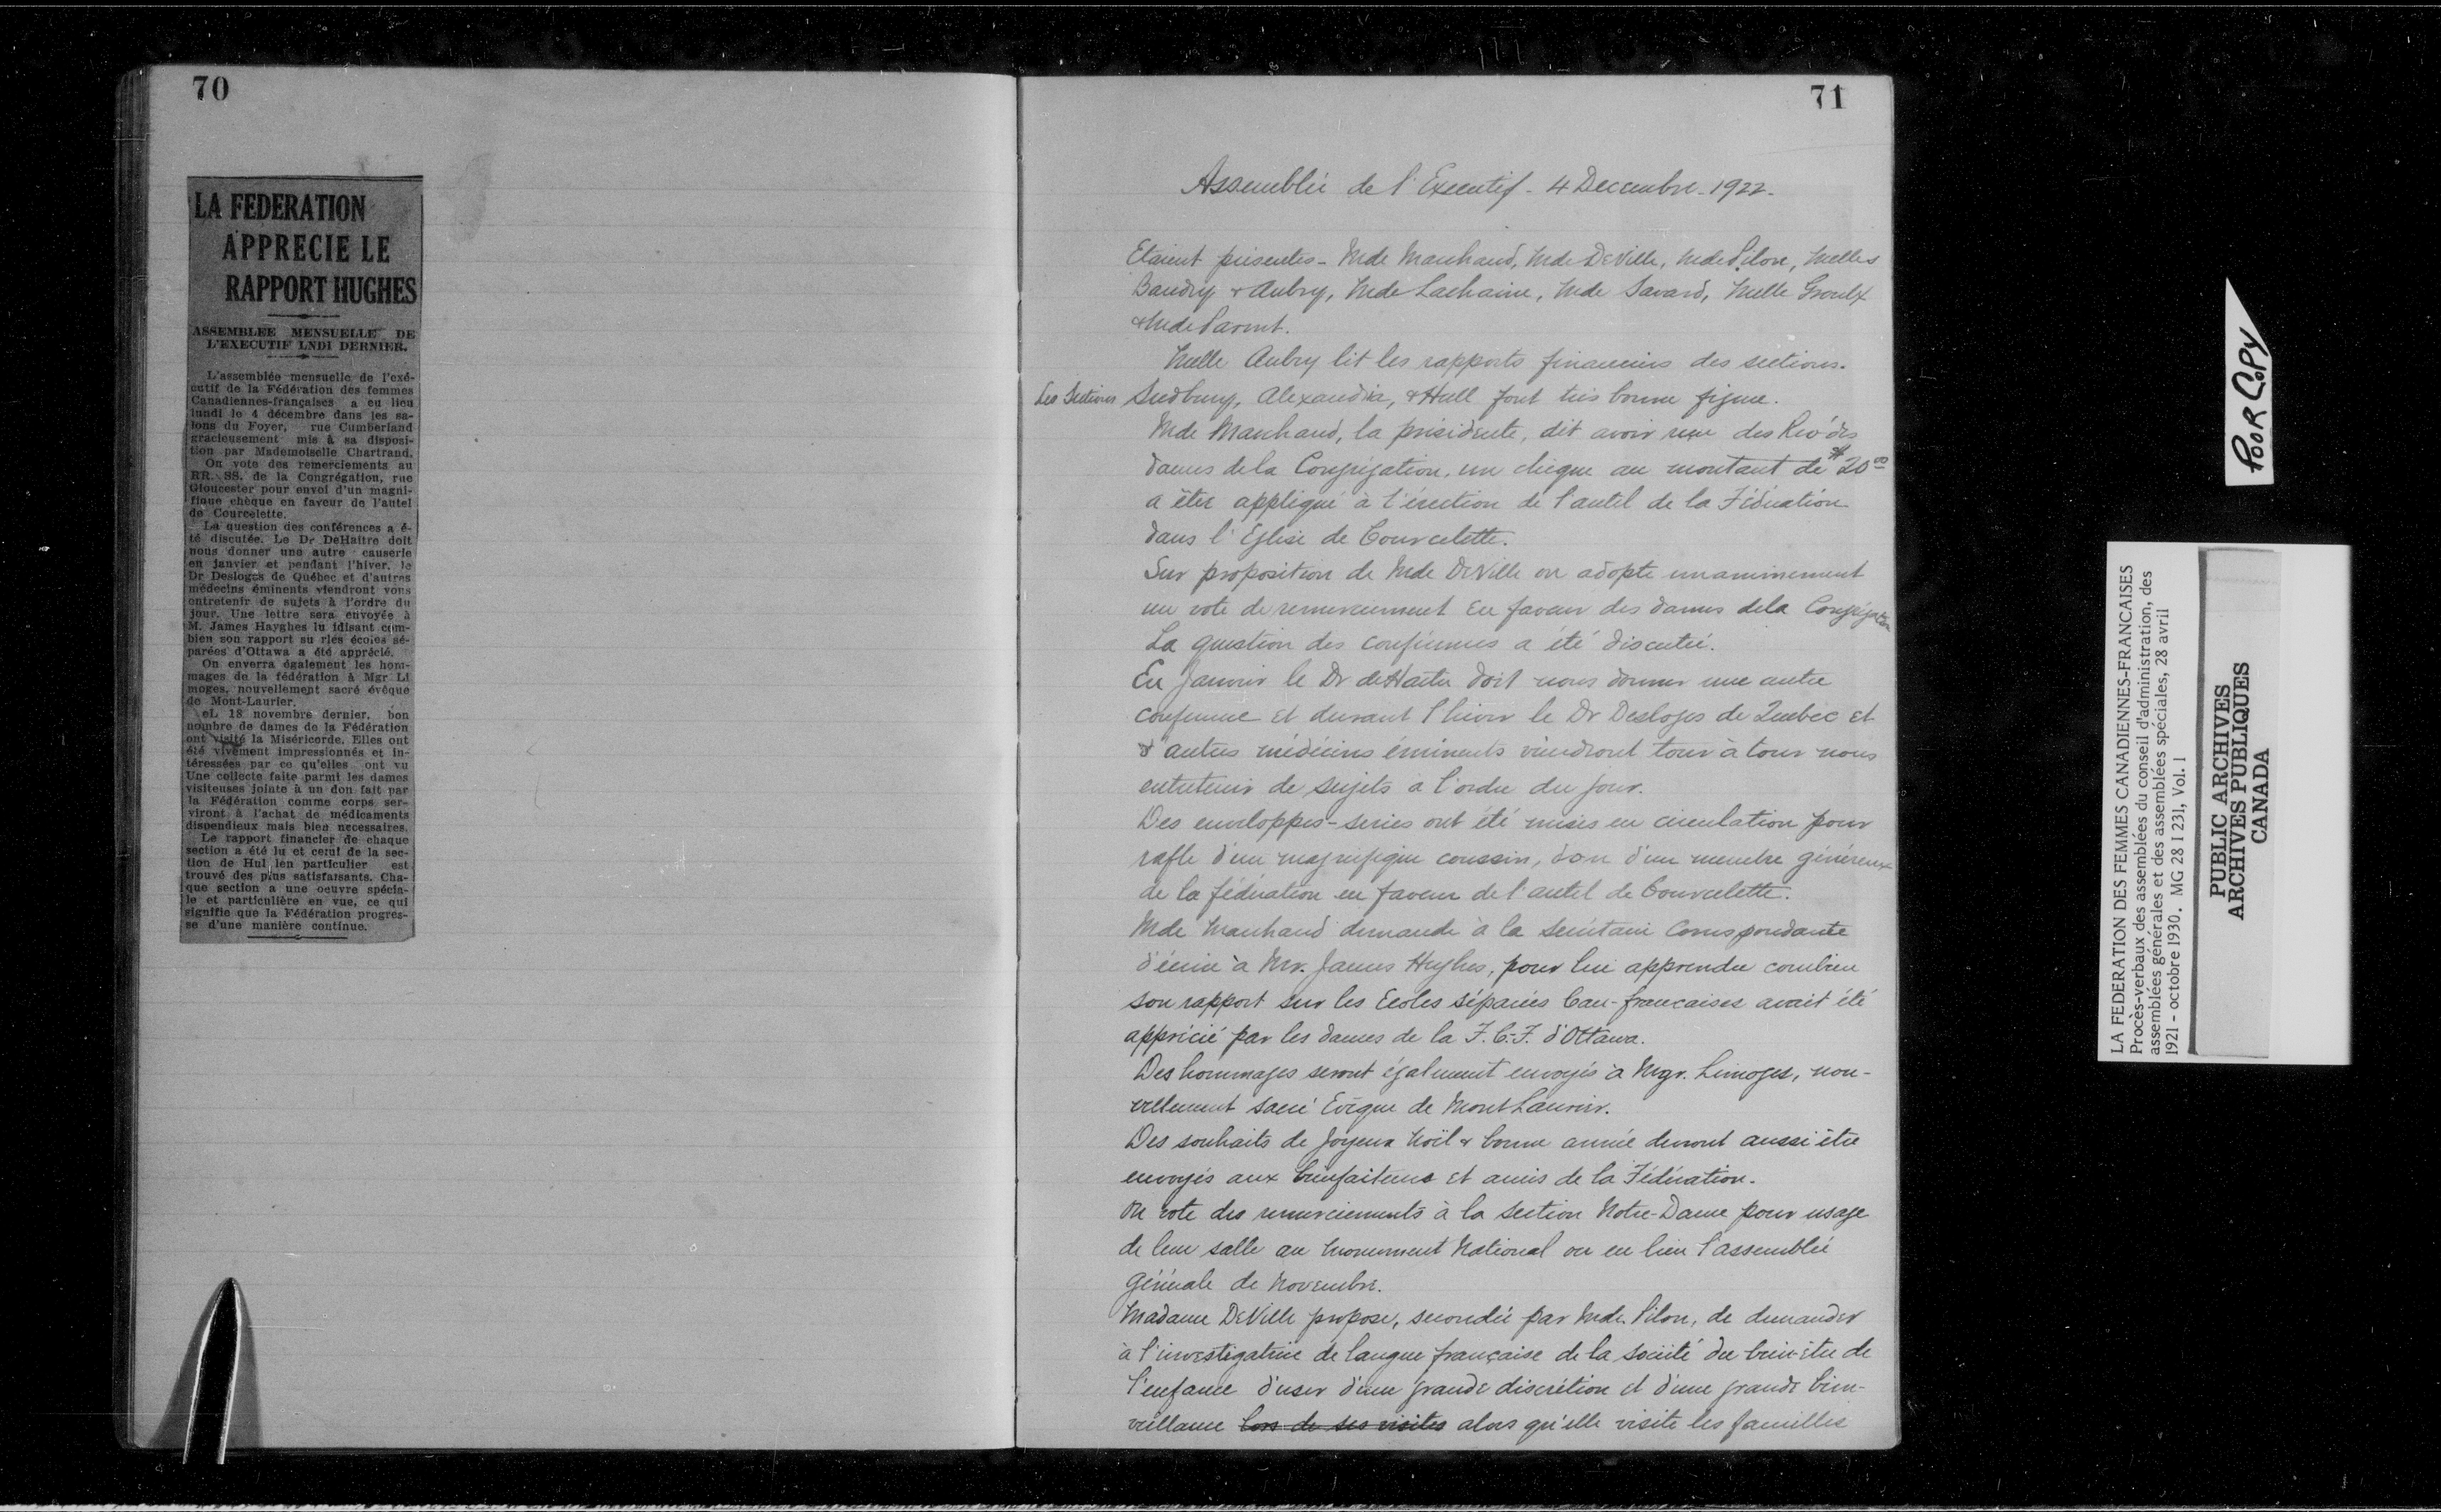 70
LA FEDERATION
APPRECIE LE
RAPPORT HUGHES
ASSEMBLEE MENSUELLE DE
L'EXECUTIF LNDI DERNIER.
L'assemblée mensuelle de l'exé-
cutif de la Fédération des femmes
Canadiennes-françaises a eu lieu
lundi le 4 décembre dans les sa-
lons du Foyer, rue Cumberland
gracieusement mis à sa disposi-
tion par Mademoiselle Chartrand.
On vote des remerciements au
RR. SS. de la Congrégation, rue
Gloucester pour envoi d'un magni-
fique chèque en faveur de l'autel
de Courcelette.
La question des conférences a é-
té discutée. Le Dr DeHaitre doit
nous donner une autre causerie
en janvier et pendant l'hiver, le
Dr Desloges de Québec et d'autres
médecins éminents viendront vous
entretenir de sujets à l'ordre du
jour. Une lettre sera envoyée à
M. James Hayghes lu idisant com-
bien son rapport su rles écoles sé-
parées d'Ottawa a été apprécié.
On enverra également les hom-
mages de la fédération à Mgr Li
moges, nouvellement sacré évêque
de Mont-Laurier.
eL 18 novembre dernier, bon
nombre de dames de la Fédération
ont visité la Miséricorde. Elles ont
été vivement impressionnés et in-
téressées par ce qu'elles ont vu
Une collecte faite parmi les dames
visiteuses jointe à un don fait par
la Fédération comme corps ser-
viront à l'achat de médicaments
dispendieux mais bien necessaires.
Le rapport financier de chaque
section a été lu et celui de la sec-
tion de Hul len particulier est
trouvé des plus satisfaisants. Cha-
que section a une oeuvre spécia-
le et particulière en vue, ce qui
signifie que la Fédération progres-
se d'une manière continue.
71
Assemblée de l'Executif - 4 Decembre - 1922.
Etaient présentes - Mde Marchand, Mde DeVille, Mde Pilon, Melles
Baudry & Aubry, Mde Lachaine, Mde Savard, Melle Groulx
& Mde Parent.
Melle Aubry lit les rapports financiers des sections.
Les Sections Sudbury, Alexandria, & Hull font très bonne figure.
Mde Marchand, la présidente, dit avoir reçu des Rév'des
dames de la Congrégation, un chèque au montant de $20.00
a être appliqué à l'érection de l'autel de la Fédération
dans l'Église de Courcelette.
Sur proposition de Mde DeVille on adopte unanimement
un vote de remerciement en faveur des dames de la Congrégation
La question des conférences a été discutée.
En Janvier le Dr deHaitre doit nous donner une autre
conférence et durant l'hiver le Dr Desloges de Québec et
d'autres médecins éminents viendront tour à tour nous
entretenir de sujets a l'ordre du jour.
Des enveloppes-séries ont été mises en circulation pour
rafle d'un magnifique coussin, don d'un membre généreux
de la fédération en faveur de l'autel de Courcelette.
Mde Marchand demande à la secrétaire Correspondante
d'écrire à Mr. James Hughes, pour lui apprendre combien
son rapport sur les Ecoles séparées Can-francaises avait été
apprécié par les dames de la F. C.-F. d'Ottawa.
Des hommages seront également envoyés à Mgr. Limoges, nou-
vellement sacré Evêque de Mont Laurier.
Des souhaits de Joyeux Noël & bonne année devront aussi être
envoyés aux bienfaiteurs et amis de la Fédération.
On vote des remerciements à la section Notre-Dame pour usage
de leur salle au Monument National ou eu lieu l'assemblée
Générale de Novembre.
Madame DeVille propose, secondée par Mde. Pilon, de demander
à l'investigatrice de langue française de la société du bien-être de
l'enfance d'user d'une grande discrétion et d'une grande bien-
veillance lors de ses visites alors qu'elle visite les familles
POOR COPY
LA FEDERATION DES FEMMES CANADIENNES-FRANCAISES
Procès-verbaux des assemblées du conseil d'administration, des
assemblées générales et des assemblées spéciales, 28 avril
1921 - octobre 1930. MG 28 I 231, Vol. 1
PUBLIC ARCHIVES
ARCHIVES PUBLIQUES
CANADA